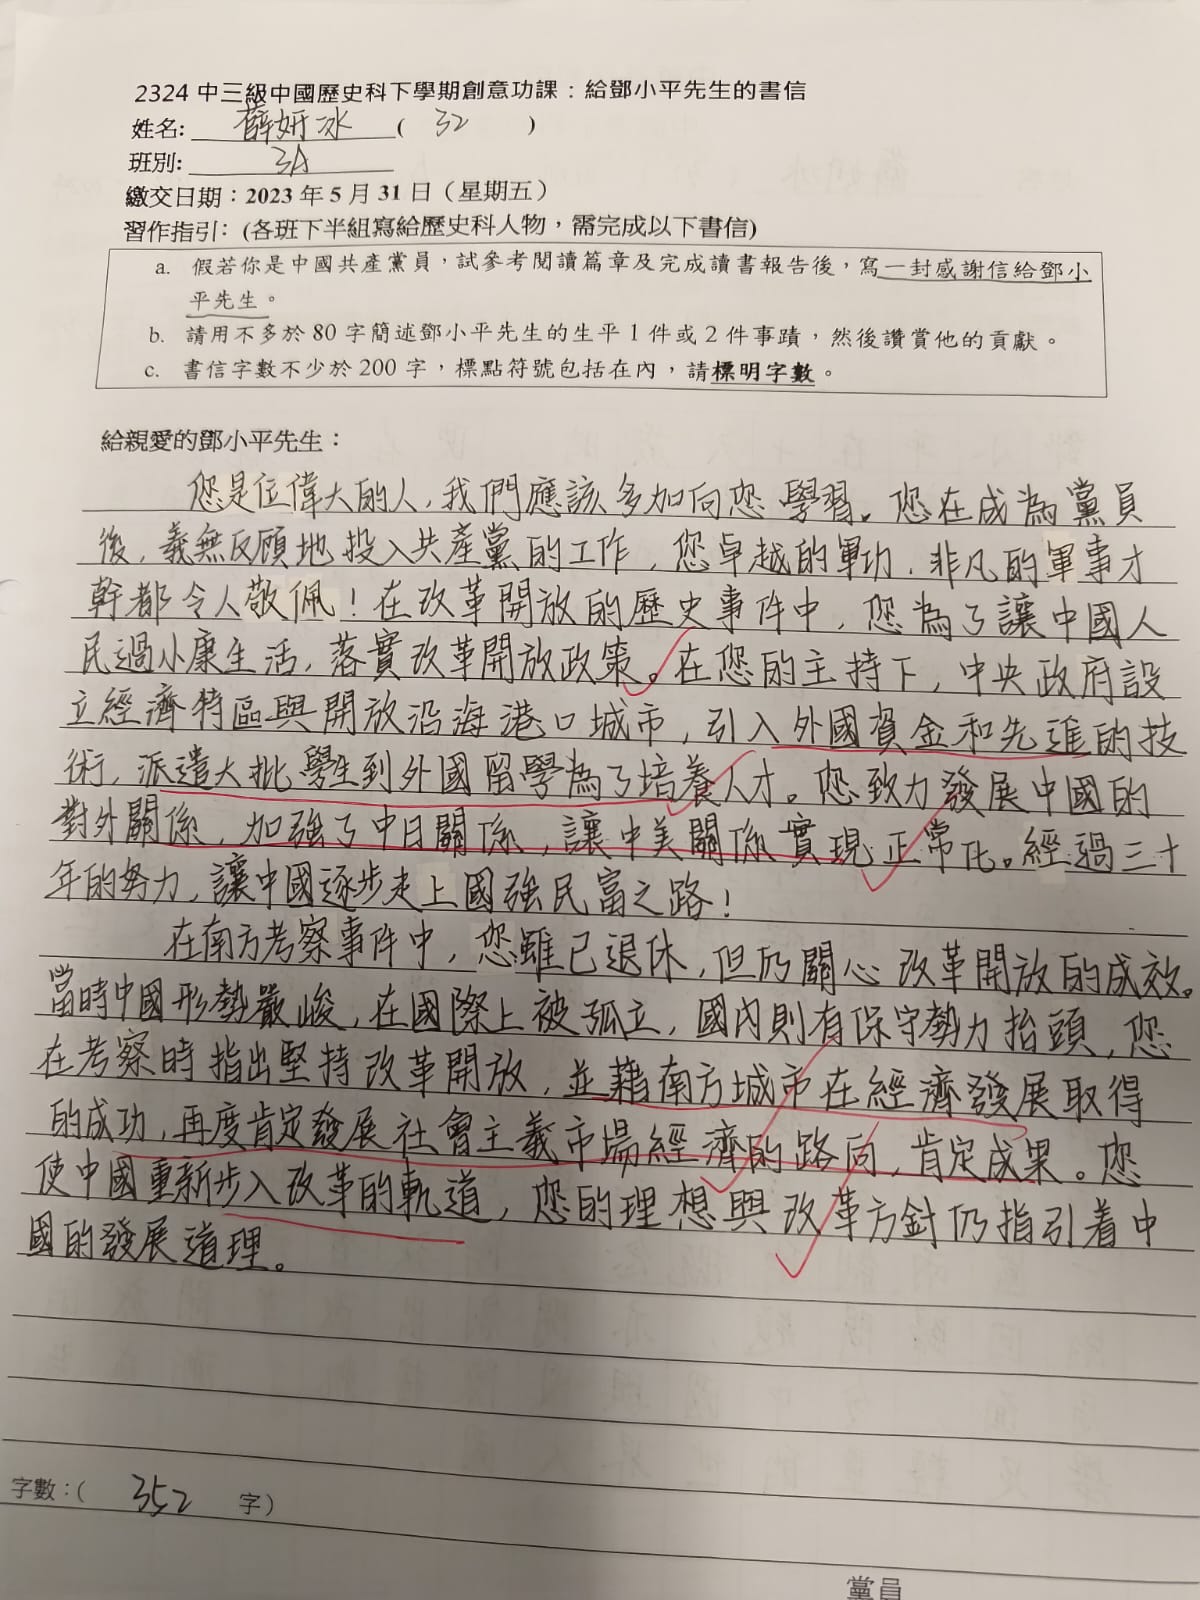 2324 中三級中國歷史科下學期創意功課：給鄧小平先生的書信
姓名: 薛妍冰 ( 32 )
班別: 3A
繳交日期：2023 年 5 月 31 日（星期五）
習作指引：(各班下半組寫給歷史科人物，需完成以下書信)
a. 假若你是中國共產黨員，試參考閱讀篇章及完成讀書報告後，寫一封感謝信給鄧小
平先生。
b. 請用不多於 80 字簡述鄧小平先生的生平 1 件或 2 件事蹟，然後讚賞他的貢獻。
c. 書信字數不少於 200 字，標點符號包括在內，請標明字數。
給親愛的鄧小平先生：
您是位偉大的人，我們應該多加向您學習。您在成為黨員
後，義無反顧地投入共產黨的工作，您卓越的軍功，非凡的軍事才
幹都令人敬佩！在改革開放的歷史事件中，您為了讓中國人
民過小康生活，落實改革開放政策。在您的主持下，中央政府設
立經濟特區與開放沿海港口城市，引入外國資金和先進的技
術，派遣大批學生到外國留學為了培養人才。您致力發展中國的
對外關係，加強了中日關係，讓中美關係實現正常化。經過三十
年的努力，讓中國逐步走上國強民富之路！
在南方考察事件中，您雖已退休，但仍關心改革開放的成效。
當時中國形勢嚴峻，在國際上被孤立，國內則有保守勢力抬頭，您
在考察時指出堅持改革開放，並藉南方城市在經濟發展取得
的成功，再度肯定發展社會主義市場經濟的路向，肯定成果。您
使中國重新步入改革的軌道，您的理想與改革方針仍指引着中
國的發展道理。
字數：( 352 字)
黨員